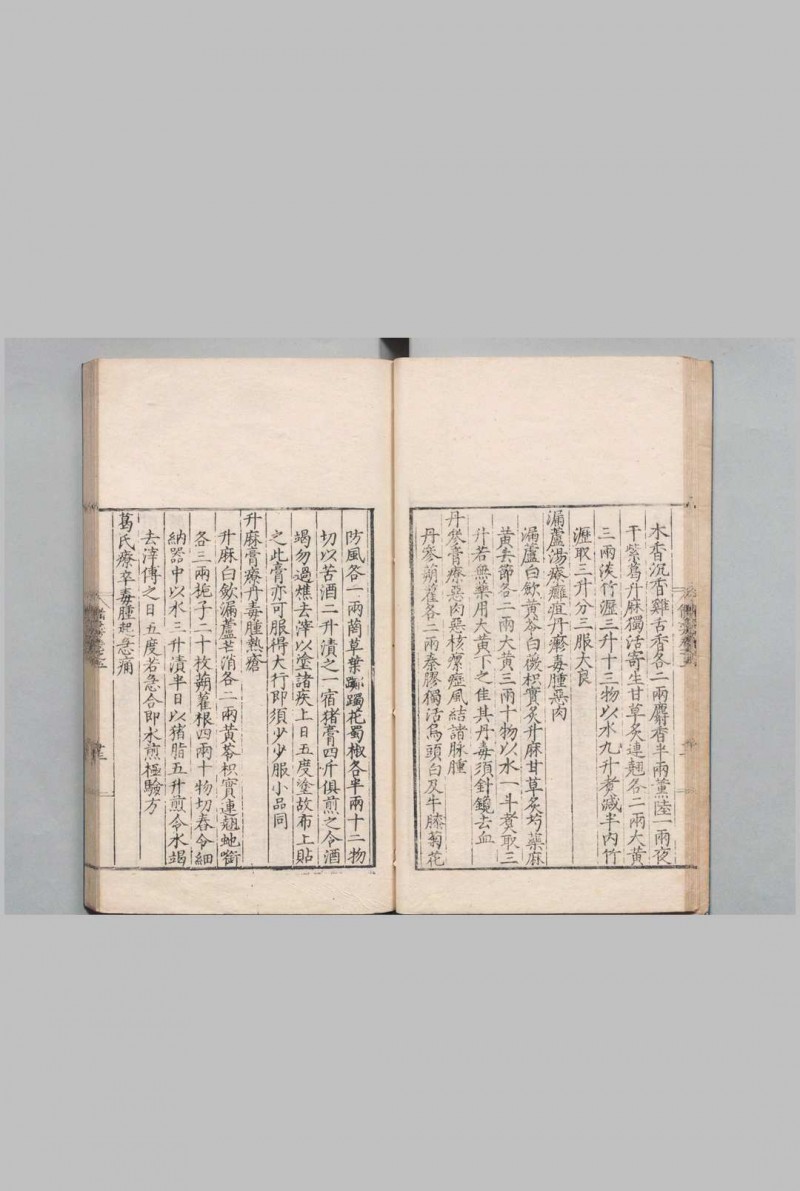 木香沉香雞舌香各二兩麝香半兩薰陸一兩夜
干紫葛升麻獨活寄生甘草炙連翹各二兩大黃
三兩淡竹瀝三升十三物以水九升煑減半内竹
瀝取三升分三服大良
漏蘆湯療癰疽丹瘮毒腫惡肉
漏蘆白歛黃芩白薇枳實炙升麻甘草炙芍藥麻
黃去節各二兩大黃三兩十物以水一斗煑取三
升若無藥用大黃下之佳其丹毒須針鑱去血
丹參膏療惡肉惡核瘰癧風結諸脉腫
丹參蒴藋各二兩秦膠獨活烏頭白及牛膝菊花
防風各一兩菵草葉躑躅花蜀椒各半兩十二物
切以苦酒二升漬之一宿猪膏四斤俱煎之令酒
竭勿過燋去滓以塗諸疾上日五度塗故布上貼
之此膏亦可服得大行即須少少服小品同
升麻膏療丹毒腫熱瘡
升麻白歛漏蘆芒消各二兩黃芩枳實連翹虵啣
各三兩梔子二十枚蒴藋根四兩十物切舂令細
納器中以水三升漬半日以猪脂五升煎令水竭
去滓傅之日五度若急合即水煎極驗方
葛氏療卒毒腫起急痛